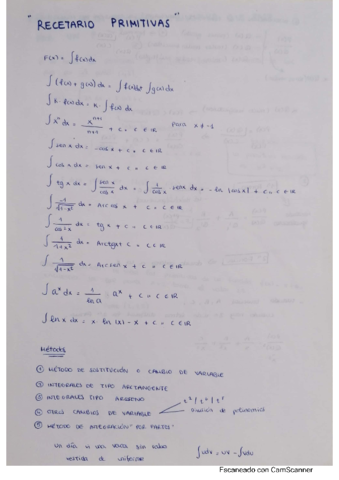 "RECETARIO PRIMITIVAS"
F(x) = ∫f(x)dx
∫(f(x) + g(x))dx = ∫f(x)dx ∫g(x)dx
∫K f(x)dx = K ∫f(x)dx
∫xⁿdx = xⁿ⁺¹/n+1 + C = C ∈ ℝ para x ≠ -1
∫sen x dx = -cos x + C = C ∈ ℝ
∫cos x dx = sen x + C = C ∈ ℝ
∫tg x dx = ∫sen x/cos x dx = ∫1/cos x senx dx = -ln |cos x| + C = C ∈ ℝ
∫-1/√1-x² dx = Arc cos x + C = C ∈ ℝ
∫1/cos²x dx = tg x + C = C ∈ ℝ
∫1/1+x² dx = Arctgx + C = C ∈ ℝ
∫1/√1-x² dx = Arcsen x + C = C ∈ ℝ
∫aˣ dx = 1/ln a · aˣ + C = C ∈ ℝ
∫ln x dx = x ln (x) - x + C = C ∈ ℝ
Métodos
① MÉTODO DE SUSTITUCIÓN O CAMBIO DE VARIABLE
② INTEGRALES DE TIPO ARCTANGENTE
③ INTEGRALES TIPO ARCSENO
④ OTROS CAMBIOS DE VARIABLE
División de polinomios
⑤ MÉTODO DE INTEGRACIÓN "POR PARTES"
un día vi una vaca sin rabo
vestida de uniforme
∫udv = uv - ∫vdu
Escaneado con CamScanner